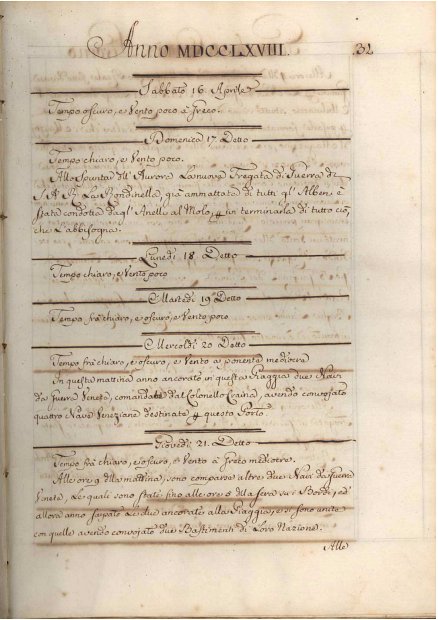 Anno MDCCLXVIII. 32
Sabbato 16. Aprile
Tempo oscuro, e Vento poco à Greco.
Domenica 17. Detto
Tempo chiaro, e Vento poco.
Allo Spuntar dell'Aurora La nuova Fregata di Guerra di
S. A. R. La Rondinella, già ammattata di tutti gl'Alberi è
stata condotta dagl'Anelli al Molo, p in terminarla di tutto ciò,
che L'abbisogna.
Lunedì 18. Detto
Tempo chiaro, e Vento poco
Martedì 19 Detto
Tempo frà chiaro, e oscuro, e Vento poco
Mercoldì 20 Detto
Tempo frà chiaro, e oscuro, e Vento a ponente mediocre
In questa mattina anno ancorato in questa Piaggia due Navi
da guerra Venete, comandate dal Colonello avendo convojato
quattro Nave Veneziane destinate p questo Porto.
Giovedì 21. Detto
Tempo frà chiaro, e oscuro, e Vento à Greco mediocre.
Alle ore 9 della mattina, sono comparse altre due Navi da guerra
Venete, Le quali sono state fino alle ore della sera su i Bordi, ed
allora anno ancorato alla Piaggia, e si sono unite
con quelle avendo convojato due Bastimenti di Loro Nazione.
Alle